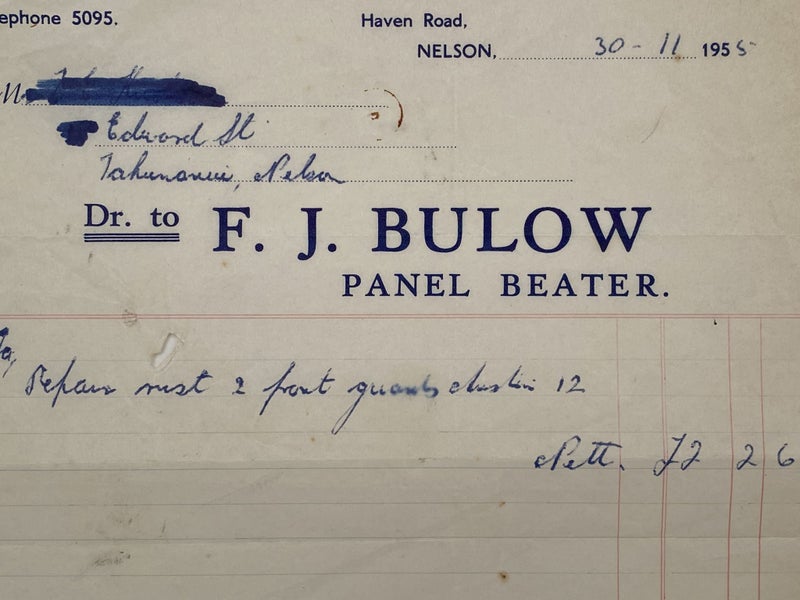 ephone 5095.
Haven Road,
NELSON, 30 - 11 1955
M
Edward St
Tahunanui, Nelson
Dr. to F. J. BULOW
PANEL BEATER.
Repair rust 2 front guards Austin 12
Nett. £2 2 6